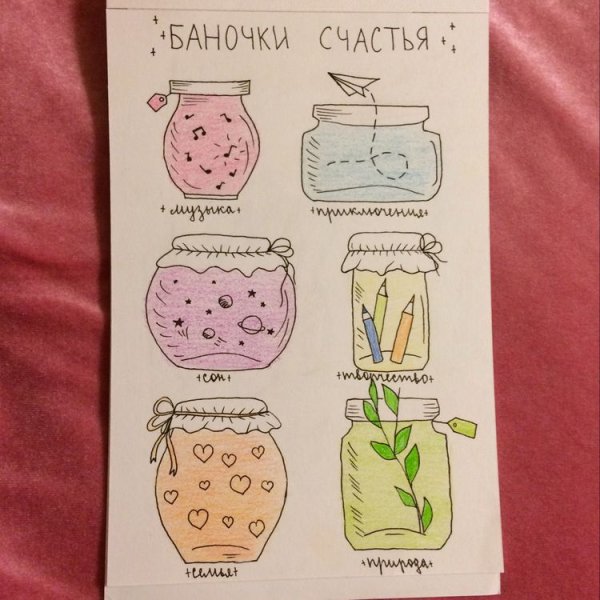 БАНОЧКИ СЧАСТЬЯ
музыка
приключения
сон
творчество
семья
природа